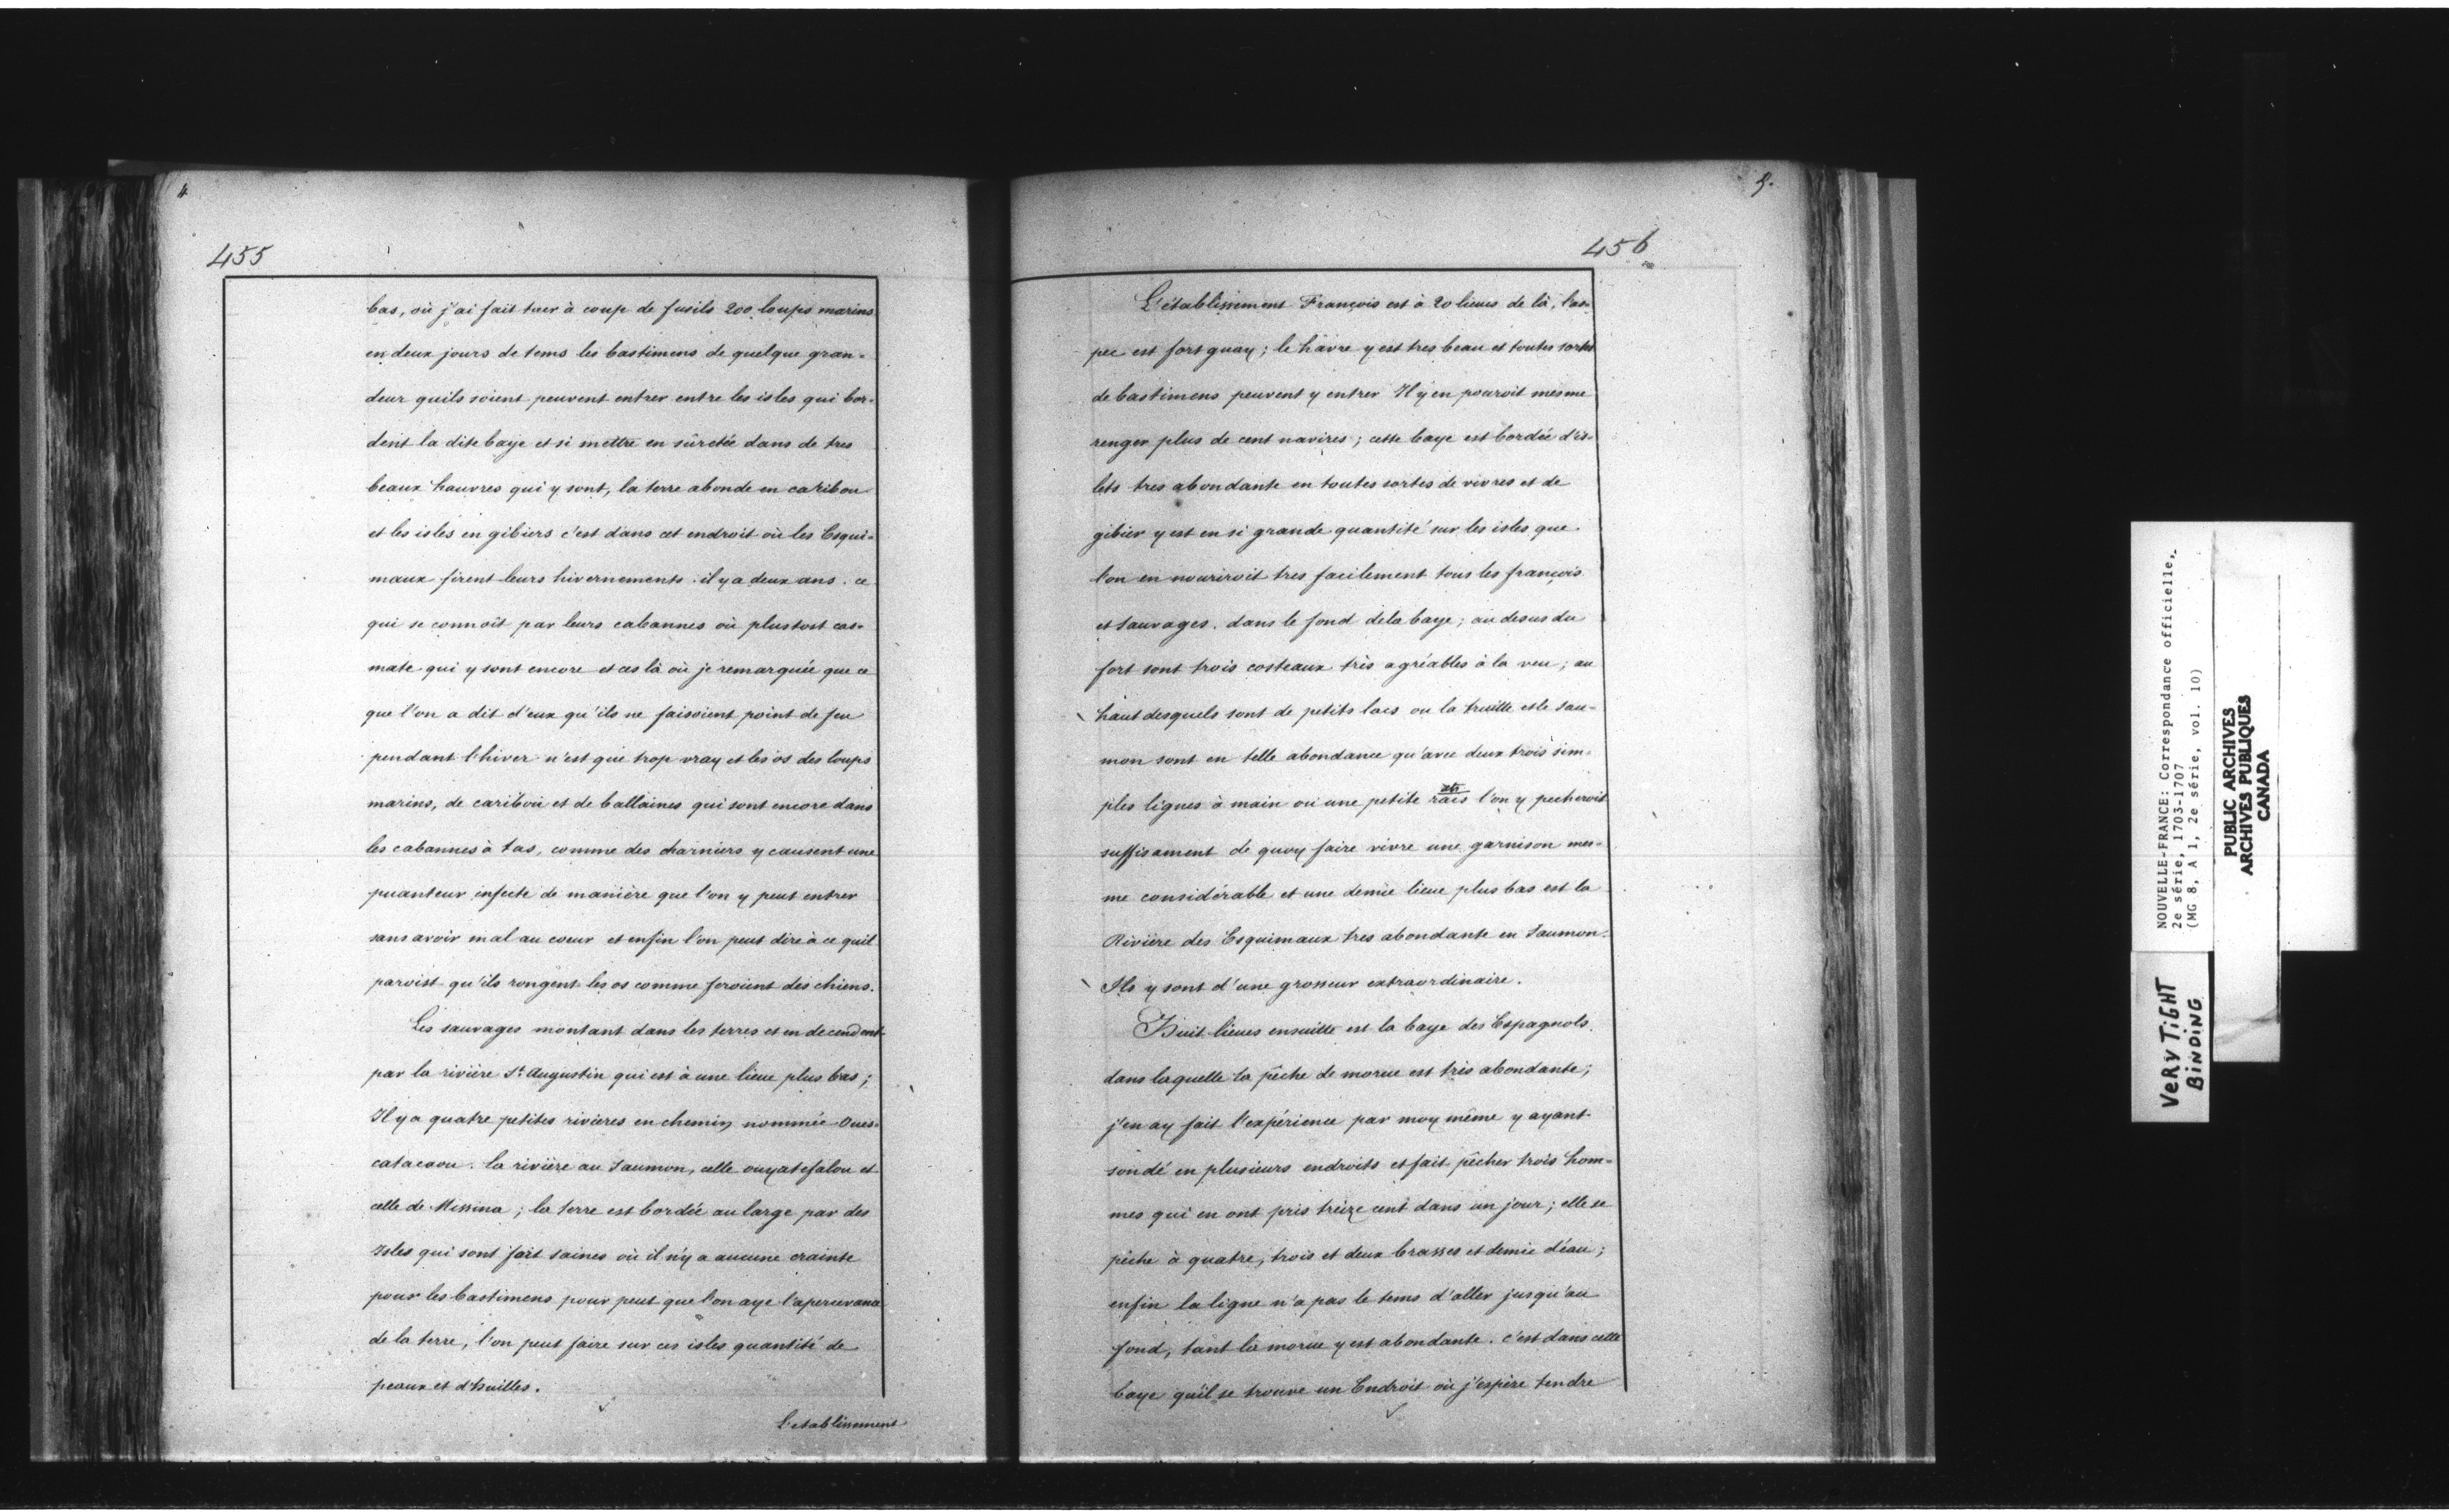 4
455
bas, où j'ai fait tuer à coup de fusils 200 loups marins
en deux jours de tems les bastimens de quelque gran-
deur quils soient peuvent entrer entre les isles qui bor-
dent la dite baye et si mettre en sûretée dans de tres
beaux hauvres qui y sont, la terre abonde en caribou
et les isles en gibiers c'est dans cet endroit où les Esqui-
maux firent leurs hivernements il y a deux ans. ce
qui se connoît par leurs cabannes où plustost cas-
mate qui y sont encore et ces là où je remarquée que ce
que l'on a dit d'eux qu'ils ne faisoient point de feu
pendant l'hiver n'est que trop vray et les os des loups
marins, de caribou et de ballaines qui sont encore dans
les cabannes à tas, comme des charniers y causent une
puanteur infecte de manière que l'on y peut entrer
sans avoir mal au coeur et enfin l'on peut dire à ce quil
paroist qu'ils rongent les os comme feroient des chiens.
Les sauvages montant dans les terres et en decendent
par la rivière St. Augustin qui est à une lieue plus bas;
Il y a quatre petites rivières en chemin nommée Oues-
catacaou. la rivière au Saumon, celle ouyatefalou et
celle de Missina; la terre est bordée au large par des
Isles qui sont fort saines où il n'y a aucune crainte
pour les bastimens pour peut que l'on aye l'apercevance
de la terre, l'on peut faire sur ces isles quantité de
peaux et d'huilles.
L'etablissement
5.
456
L'établissement François est à 20 lieues de là, l'as-
pec est fort guay; le hâvre y est tres beau et toutes sortes
de bastimens peuvent y entrer Il y en pouroit mesme
renger plus de cent navires; cette baye est bordée d'is-
lets tres abondante en toutes sortes de vivres et de
gibier y est en si grande quantité sur les isles que
l'on en nouriroit tres facilement tous les françois
et sauvages. dans le fond de la baye; au desus du
fort sont trois costeaux très agréables à la veu; au
haut desquels sont de petits lacs ou la truitte et le sau-
mon sont en telle abondance qu'avec deux trois sim-
ples lignes à main ou une petite rais l'on y pecheroit
suffisament de quoy faire vivre une garnison mes-
me considérable et une demie lieue plus bas est la
Rivière des Esquimaux tres abondante en Saumon.
Ils y sont d'une grosseur extraordinaire.
Huit lieues ensuitte est la baye des Espagnols.
dans laquelle la pêche de morue est très abondante;
j'en ay fait l'expérience par moy même y ayant
sondé en plusieurs endroits et fait pêcher trois hom-
mes qui en ont pris treize cent dans un jour; elle se
pêche à quatre, trois et deux brasses et demie d'eau;
enfin la ligne n'a pas le tems d'aller jusqu'au
fond, tant la morue y est abondante. c'est dans cette
baye qu'il se trouve un Endroit où j'espère tendre
NOUVELLE-FRANCE: Correspondance officielle,
2e série, 1703-1707
(MG 8, A 1, 2e série, vol. 10)
PUBLIC ARCHIVES
ARCHIVES PUBLIQUES
CANADA
VERY TIGHT
BINDING